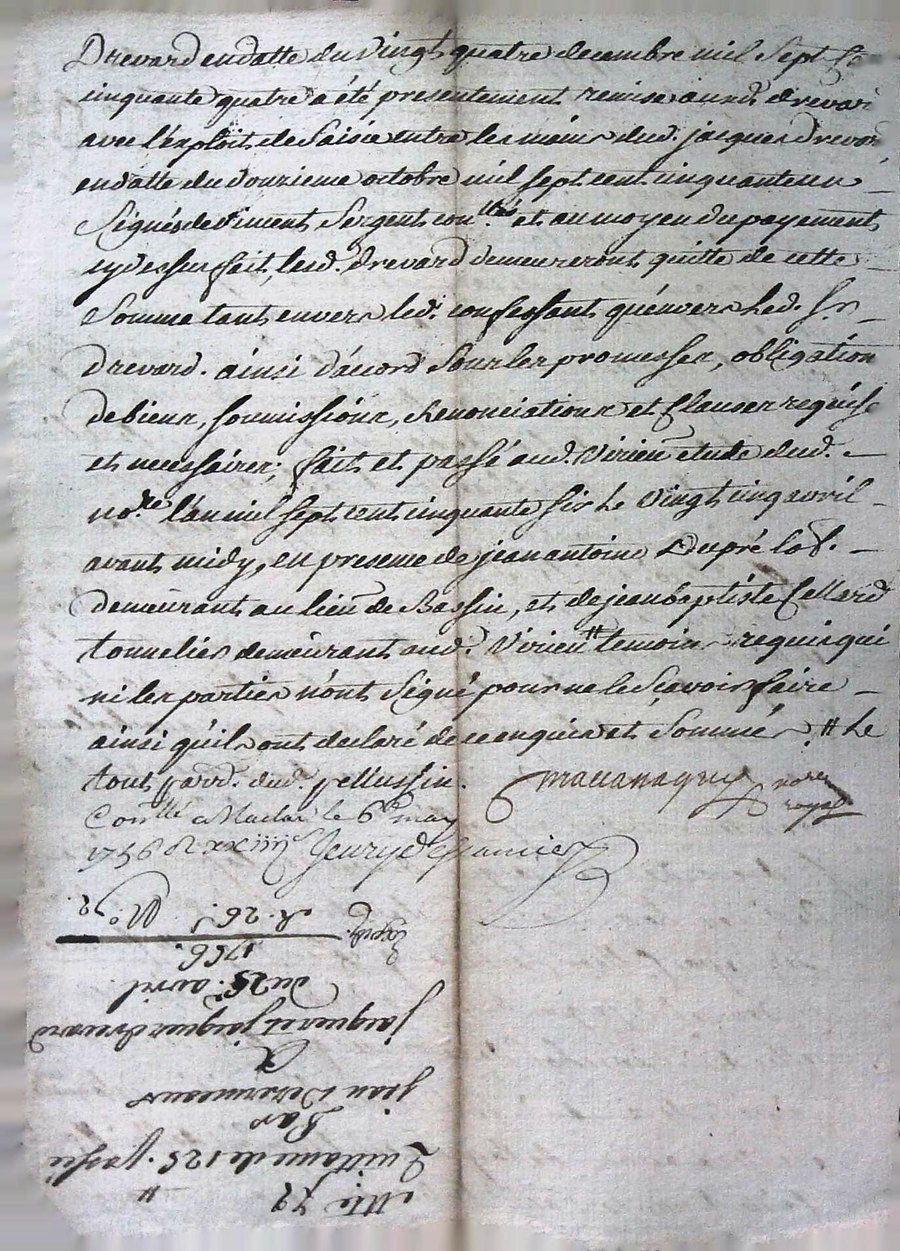 Drevard en datte du vingt quatre decembre mil sept ce
cinquante quatre a été presentement remise aund. drevard
avec l'exploit de saisie entre les mains dud. jacques drevard
en datte du douzieme octobre mil sept cent cinquante un
signés deviment sergent con.llés et au moyen du payement
cy dessus fait, lesd. drevard demeureront quitte de cette
somme tant envers led. confessant qu'envers led. sr
drevard. ainsi d'acord sous les promesses, obligation
de biens, soumissions, Renonciations et clauses requise
et necessaires; fait et passé aud. Virieu etude dud.
no.re l'an mil sept cent cinquante six le vingt cinq avril
avant midy, en presence de jean antoine Dupré lab.
demeurant au lieu de Bassin, et de jean baptiste Cellard
tonnelier demeurant aud. Virieu # temoins requis qui
ni les parties n'ont signé pour ne le sçavoir faire
ainsi qu'ils ont declaré de ce enquis et sommés. # le
tout parr. dud. pellussin.
mallanaquy no.re royal
Con.llé a Maclas le 6e may
1756 R xxiiii s
Expedié
R. 26 s N.o 72.
1756.
du 25. avril
jacques et jacques drevard
A
jean Desermeaux
Par
Quittance de 125. passée
Cotte 72 #